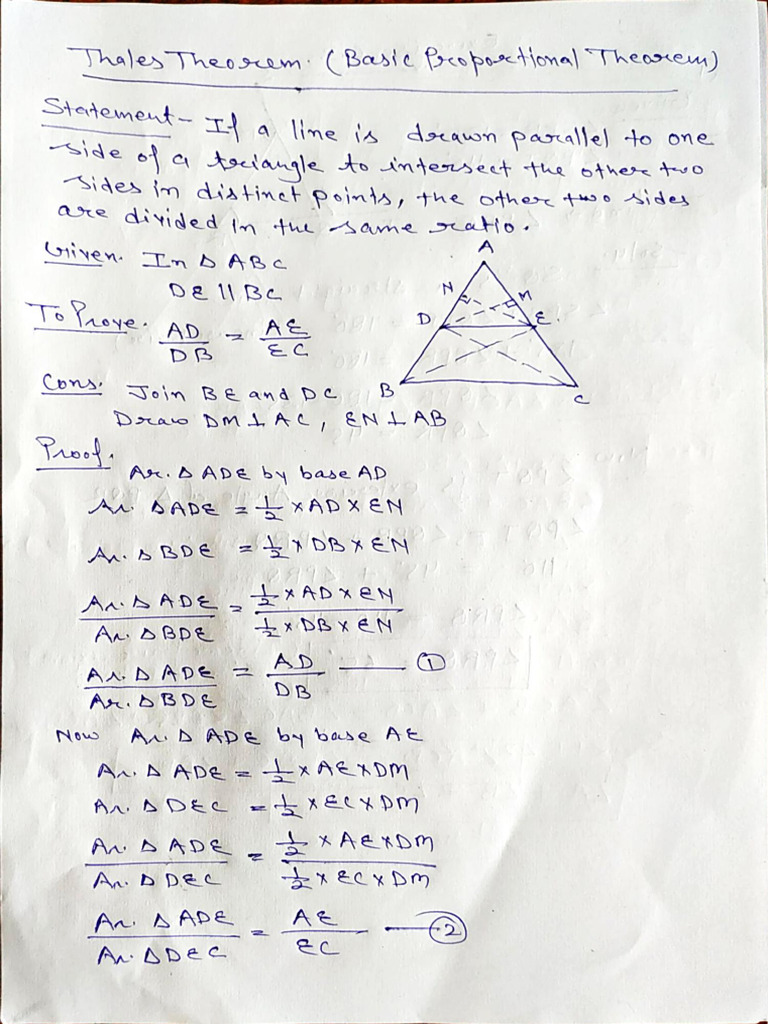 Thales Theorem. (Basic Proportional Theorem)
Statement - If a line is drawn parallel to one
side of a triangle to intersect the other two
sides in distinct points, the other two sides
are divided in the same ratio.
Given. In Δ ABC
DE || BC
To Prove. AD/DB = AE/EC
Cons. Join BE and DC
Draw DM ⊥ AC, EN ⊥ AB
A
N
M
D
E
B
C
Proof.
Ar. Δ ADE by base AD
Ar. Δ ADE = 1/2 × AD × EN
Ar. Δ BDE = 1/2 × DB × EN
Ar. Δ ADE / Ar. Δ BDE = 1/2 × AD × EN / 1/2 × DB × EN
Ar. Δ ADE / Ar. Δ BDE = AD/DB —— ①
Now Ar. Δ ADE by base AE
Ar. Δ ADE = 1/2 × AE × DM
Ar. Δ DEC = 1/2 × EC × DM
Ar. Δ ADE / Ar. Δ DEC = 1/2 × AE × DM / 1/2 × EC × DM
Ar. Δ ADE / Ar. Δ DEC = AE/EC —— ②